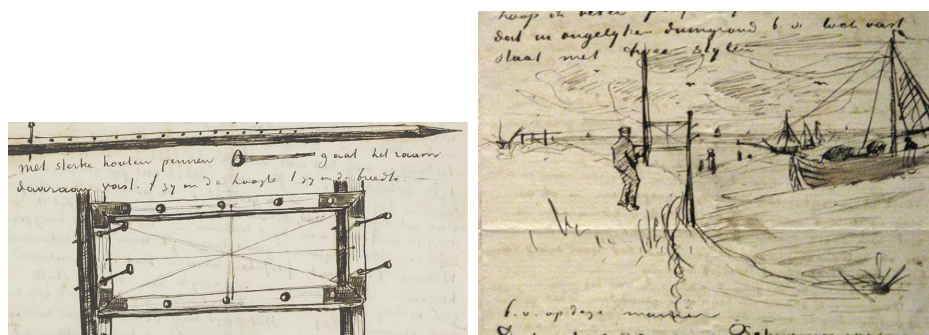 met sterke houten pennen gaat het raam
daaraan vast. 't zy in de hoogte 't zy in de breedte.
hoop ik beter
dat in ongelyken duingrond b.v. wat vast
staat met twee stylen
b.v. op deze manier